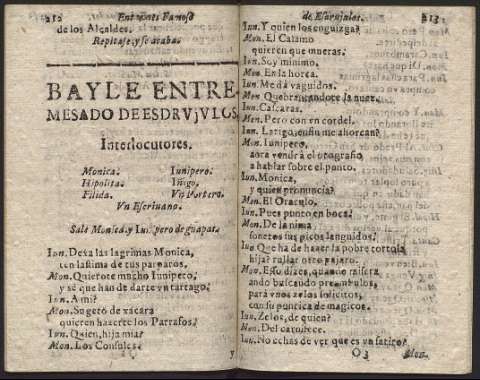 212 Entremes Famoso
de los Alcaldes.
Repitase, y se acaba.
BAYLE ENTRE
MESADO DE ESDRVjVLOS.
Interlocutores.
Monica. Iunipero.
Hipolita. Iñigo.
Filida. Vn Portero.
Vn Escriuano.
Sale Monica, y Iunipero de guapas.
Iun. Dexa las lagrimas Monica,
ten lastima de tus parparos.
Mon. Quierote mucho Iunipero,
y sè que han de darte vn tartago.
Iun. A mi?
Mon. Sugeto de xacara
quieren hazerte los Parrafos.
Iun. Quien, hija mia?
Mon. Los Consules.
y
de Esdrujulos. 213
Iun. Y quien los
Mon. El Catamo
quieren que mueras.
Iun. Soy minimo.
Mon. En la horca.
Iun. Me dà vaguidos.
Mon. Quebrantandote la nuez.
Iun. Cascaras.
Mon. Pero con vn cordel.
Iun. Latigo, enfin me ahorcan?
Mon. Iunipero,
aora vendrà el
a hablar sobre el punto.
Iun. Monica,
y quien pronuncia?
Mon. El Oraculo.
Iun. Pues punto en boca.
Mon. De la nima
son estos sus picos languidos.
Iun. Que ha de hazer la pobre tortola
hija? rullar otro pajaro.
Mon. Esso dizes, quando misera
ando buscando preambulos,
para vnos zelos solicitos,
con su pontica de magicos.
Iun. Zelos, de quien?
Mon. Del
Iun. No echas de ver que es vn satiro?
O3 Mon.